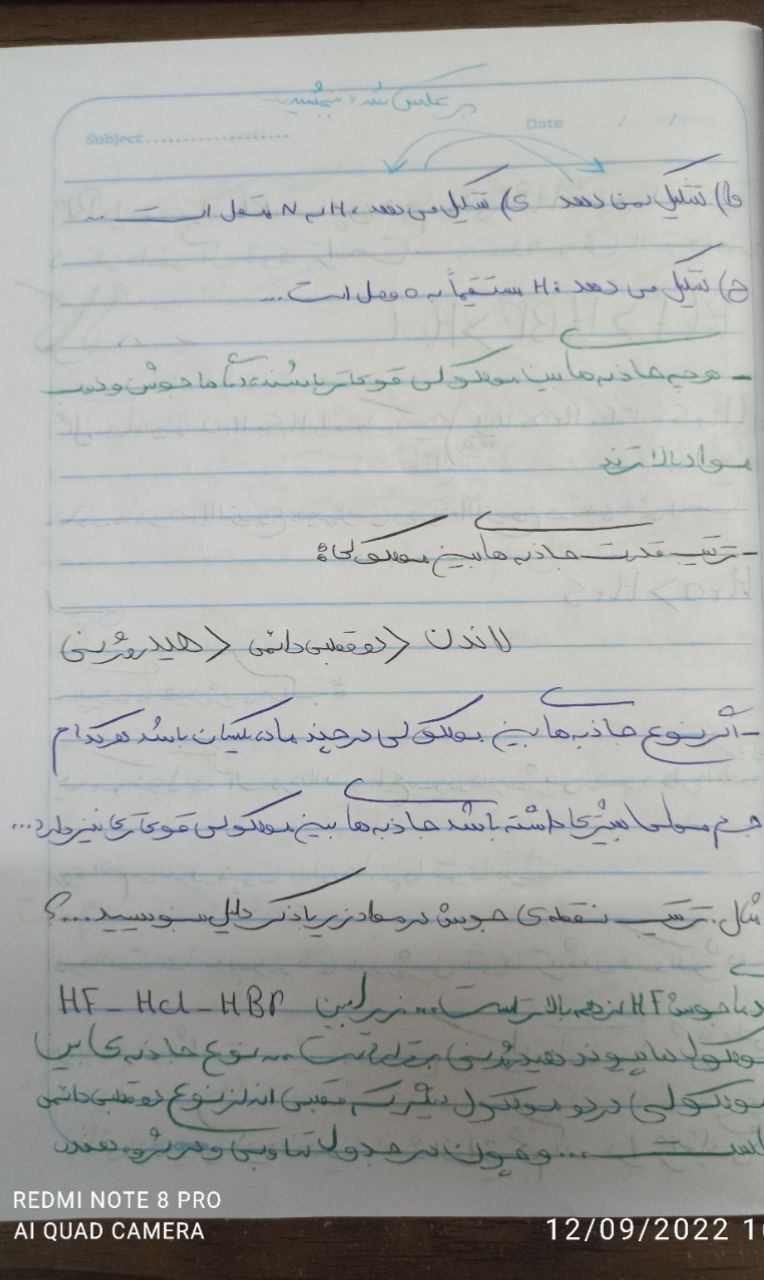 برعکس شد ببخشید
Subject.................... Date / /
ط) تشکیل نمی دهد ی) تشکیل می دهد، H به N متصل است ...
ح) تشکیل می دهد: H مستقیماً به o وصل است...
- هرچه جاذبه ها بین مولکولی قوی تر باشند، دمای جوش و ذوب
مواد بالاترند
- ترتیب قدرت جاذبه های بین مولکولی:
لاندن < دو قطبی دائمی < هیدروژنی
- اگر نوع جاذبه های بین مولکولی در چند ماده یکسان باشد هر کدام
جرم مولی بیشتری داشته باشد جاذبه های بین مولکولی قوی تری نیز دارد...
مثال: ترتیب نقطه ی جوش در مواد زیر با ذکر دلیل بنویسید...؟
HF - Hcl - HBr دمای جوش HF از همه بالاتر است... زیرا بین
مولکول ها پیوند هیدروژنی برقرار است ... نوع جاذبه ی بین
مولکولی در دو مولکول دیگر که قطبی اند از نوع دو قطبی دائمی
است ... و چون در جدول تناوبی و در گروه هفده
REDMI NOTE 8 PRO
AI QUAD CAMERA
12/09/2022 1